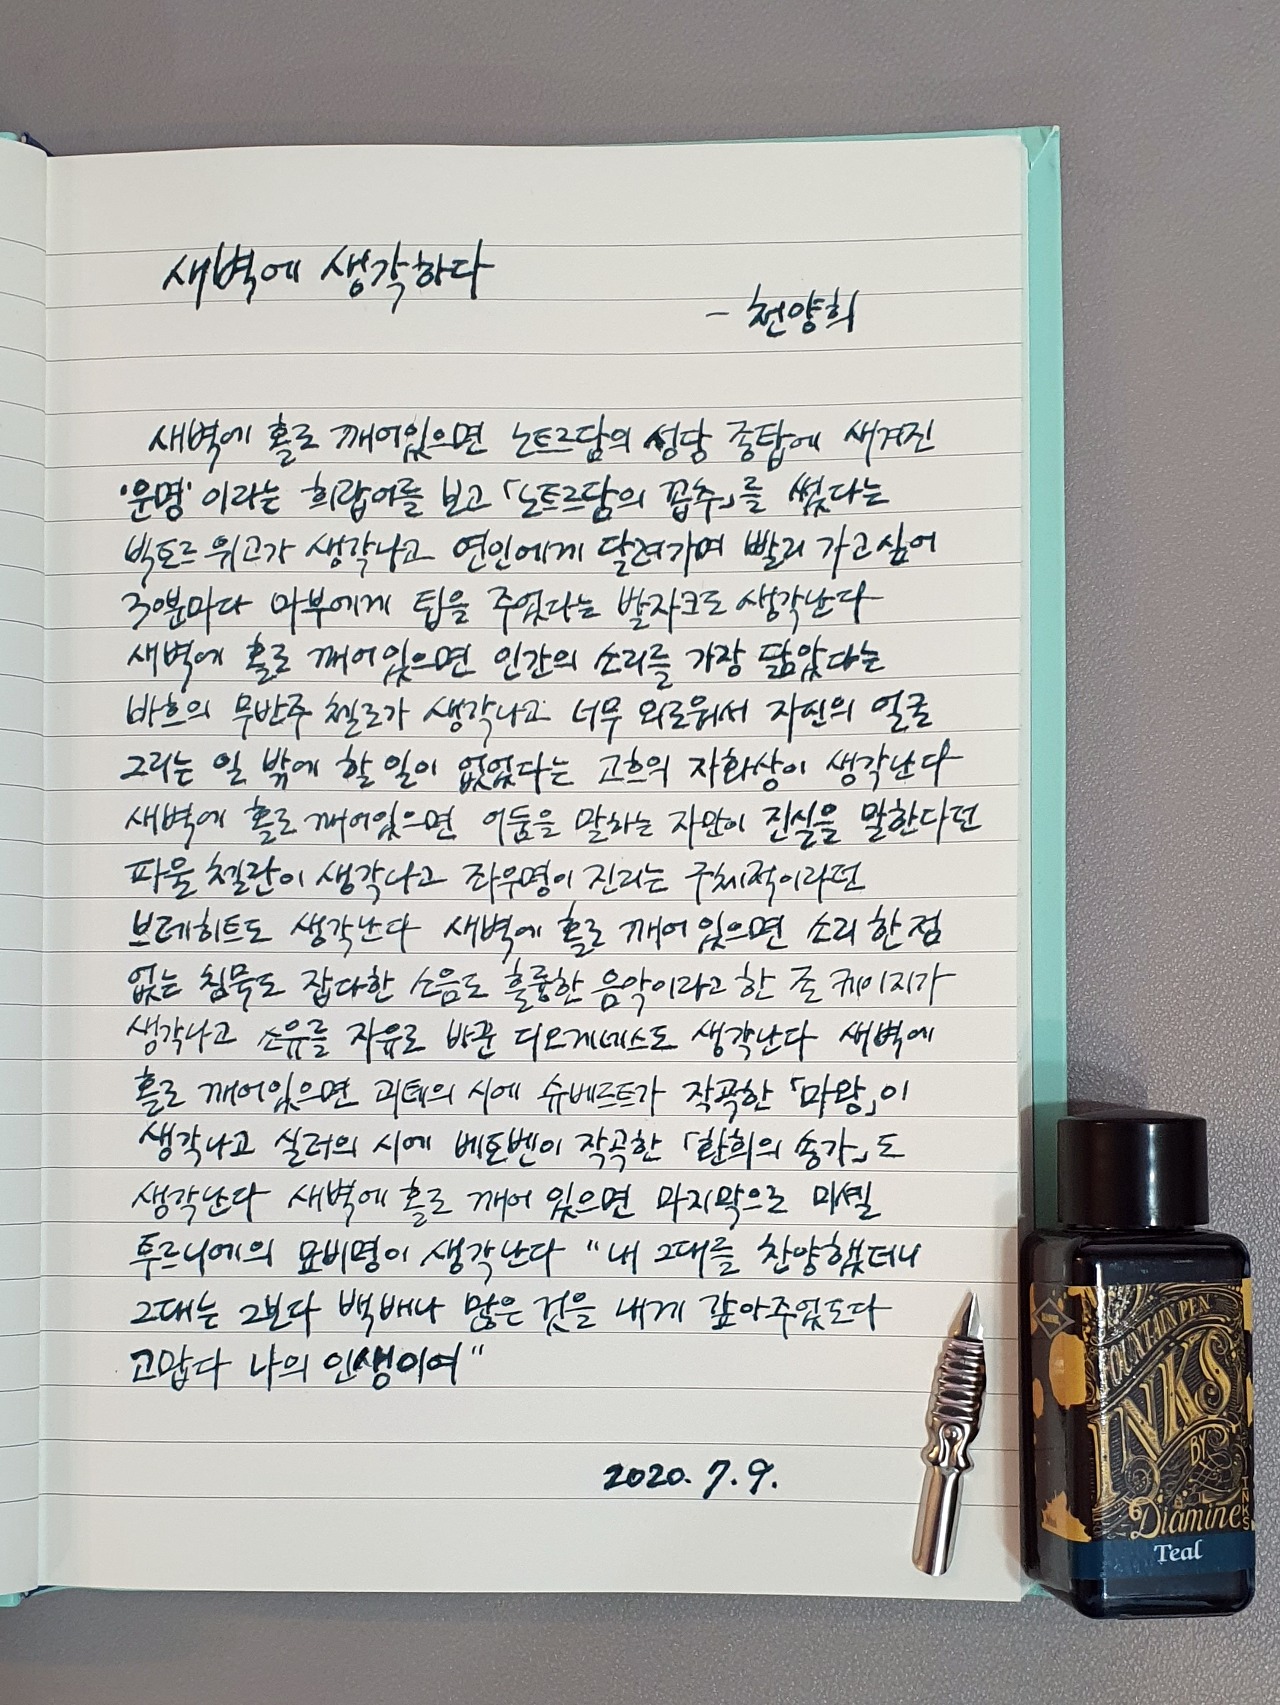 새벽에 생각하다
- 천양희
새벽에 홀로 깨어있으면 노트르담의 성당 종탑에 새겨진
'운명' 이라는 희랍어를 보고 「노트르담의 꼽추」를 썼다는
빅토르 위고가 생각나고 연인에게 달려가며 빨리 가고 싶어
30분마다 마부에게 팁을 주었다는 발자크도 생각난다
새벽에 홀로 깨어있으면 인간의 소리를 가장 닮았다는
바흐의 무반주 첼로가 생각나고 너무 외로워서 자신의 얼굴
그리는 일 밖에 할 일이 없었다는 고흐의 자화상이 생각난다
새벽에 홀로 깨어있으면 어둠을 말하는 자만이 진실을 말한다던
파울 첼란이 생각나고 좌우명이 진리는 구체적이라던
브레히트도 생각난다 새벽에 홀로 깨어 있으면 소리 한 점
없는 침묵도 잡다한 소음도 훌륭한 음악이라고 한 존 케이지가
생각나고 소유를 자유로 바꾼 디오게네스도 생각난다 새벽에
홀로 깨어있으면 괴테의 시에 슈베르트가 작곡한 「마왕」이
생각나고 실러의 시에 베토벤이 작곡한 「환희의 송가」도
생각난다 새벽에 홀로 깨어 있으면 마지막으로 미셸
투르니에의 묘비명이 생각난다 "내 그대를 찬양했더니
그대는 그보다 백배나 많은 것을 내게 갚아주었도다
고맙다 나의 인생이여"
2020. 7. 9.
FOUNTAIN PEN
INKS
BY
Diamine
Teal